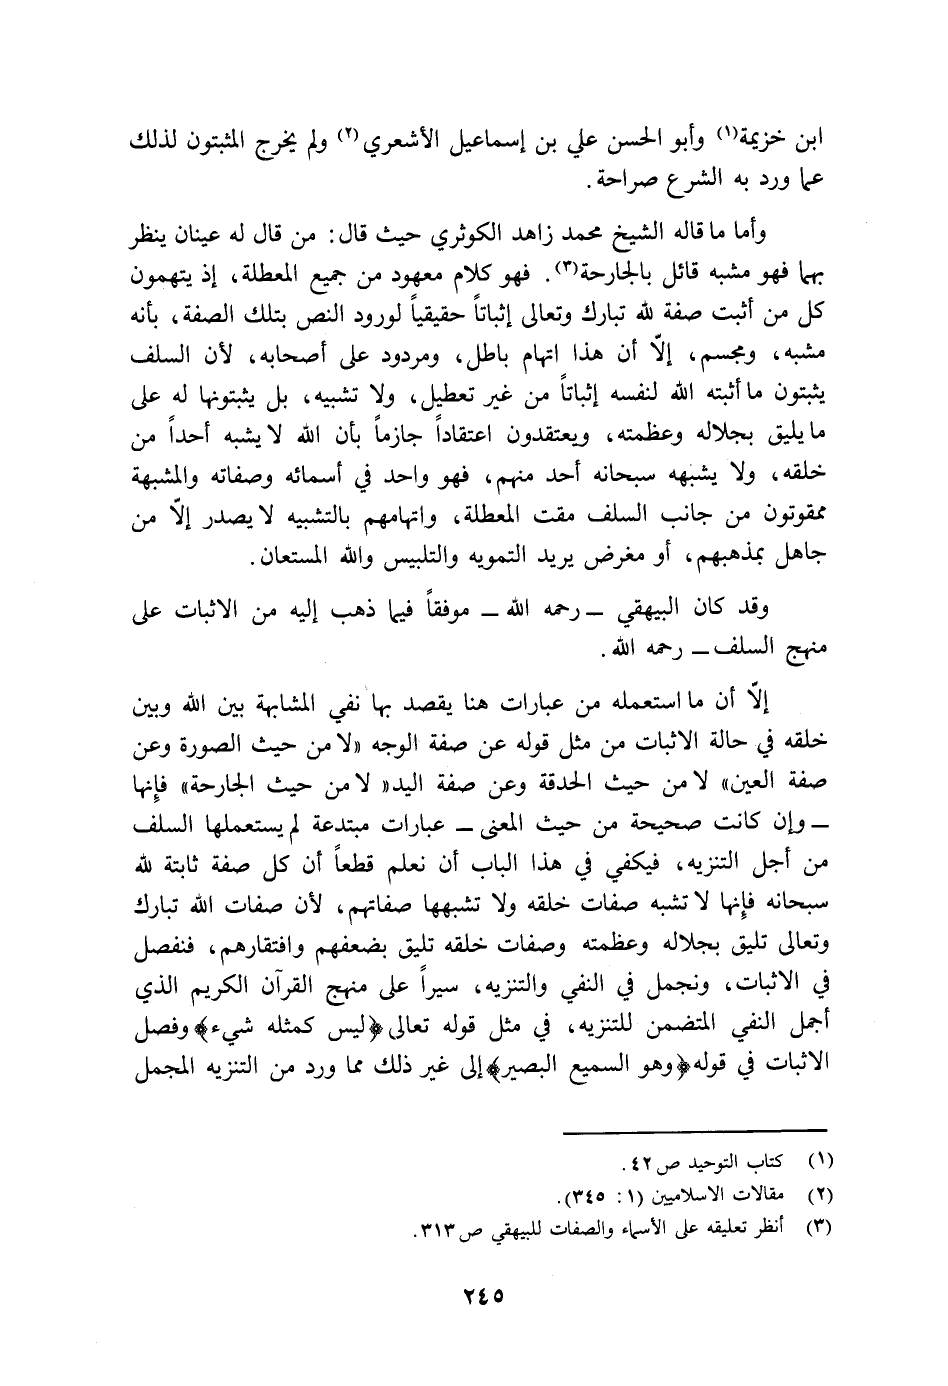 ابن خزيمة(١) وأبو الحسن علي بن إسماعيل الأشعري(٢) ولم يخرج المثبتون لذلك
عما ورد به الشرع صراحة.
وأما ما قاله الشيخ محمد زاهد الكوثري حيث قال: من قال له عينان ينظر
بهما فهو مشبه قائل بالجارحة(٣). فهو كلام معهود من جميع المعطلة، إذ يتهمون
كل من أثبت صفة لله تبارك وتعالى إثباتاً حقيقياً لورود النص بتلك الصفة، بأنه
مشبه، ومجسم، إلّا أن هذا اتهام باطل، ومردود على أصحابه، لأن السلف
يثبتون ما أثبته الله لنفسه إثباتاً من غير تعطيل، ولا تشبيه، بل يثبتونها له على
ما يليق بجلاله وعظمته، ويعتقدون اعتقاداً جازماً بأن الله لا يشبه أحداً من
خلقه، ولا يشبهه سبحانه أحد منهم، فهو واحد في أسمائه وصفاته والمشبهة
ممقوتون من جانب السلف مقت المعطلة، واتهامهم بالتشبيه لا يصدر إلّا من
جاهل بمذهبهم، أو مغرض يريد التمويه والتلبيس والله المستعان.
وقد كان البيهقي ــ رحمه الله ــ موفقاً فيما ذهب إليه من الاثبات على
منهج السلف ــ رحمه الله.
إلّا أن ما استعمله من عبارات هنا يقصد بها نفي المشابهة بين الله وبين
خلقه في حالة الاثبات من مثل قوله عن صفة الوجه «لا من حيث الصورة وعن
صفة العين» لا من حيث الحدقة وعن صفة اليد« لا من حيث الجارحة» فإنها
ــ وإن كانت صحيحة من حيث المعنى ــ عبارات مبتدعة لم يستعملها السلف
من أجل التنزيه، فيكفي في هذا الباب أن نعلم قطعاً أن كل صفة ثابتة لله
سبحانه فإنها لا تشبه صفات خلقه ولا تشبهها صفاتهم، لأن صفات الله تبارك
وتعالى تليق بجلاله وعظمته وصفات خلقه تليق بضعفهم وافتقارهم، فنفصل
في الاثبات، ونجمل في النفي والتنزيه، سيراً على منهج القرآن الكريم الذي
أجمل النفي المتضمن للتنزيه، في مثل قوله تعالى ﴿ليس كمثله شيء﴾ وفصل
الاثبات في قوله ﴿وهو السميع البصير﴾ إلى غير ذلك مما ورد من التنزيه المجمل
(١) كتاب التوحيد ص٤٢.
(٢) مقالات الاسلاميين (١: ٣٤٥).
(٣) أنظر تعليقه على الأسماء والصفات للبيهقي ص٣١٣.
٢٤٥